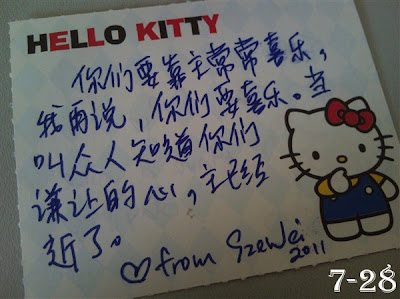 HELLO KITTY
你们要靠主常常喜乐，
我再说，你们要喜乐。当
叫众人知道你们
谦让的心，主已经
近了。
♡ from SzeWei
2011
7-28